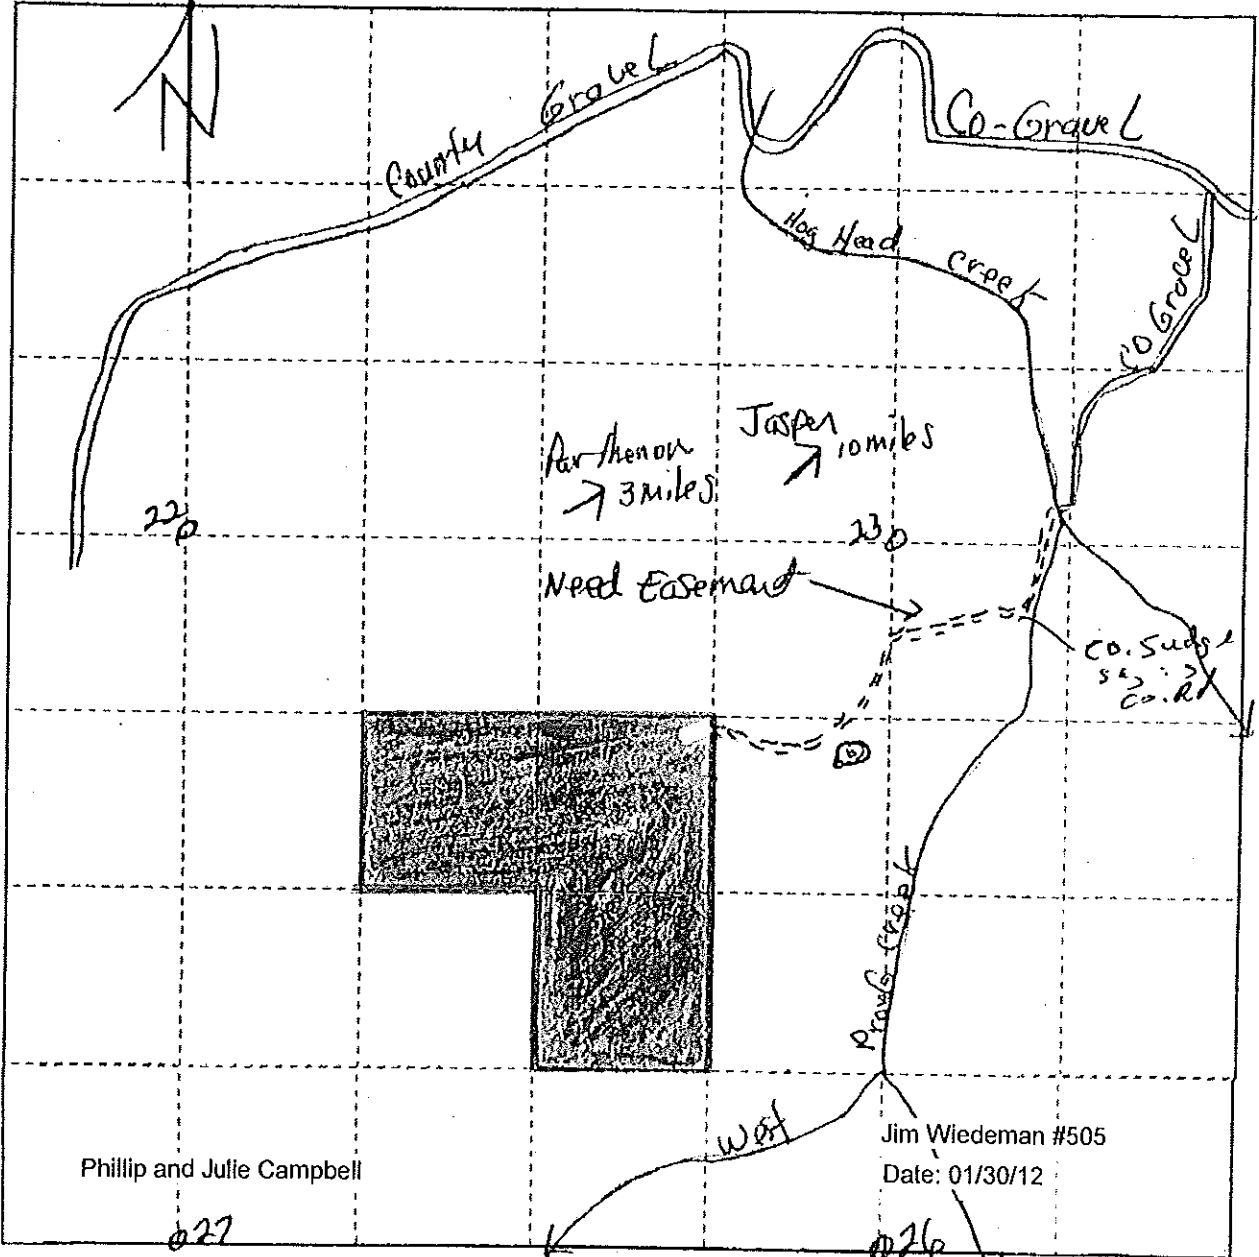 N
County Gravel
Co-Gravel
Hog Head Creek
CO Gravel
Parthenon
3 miles
Jasper
10 miles
22
23
Need Easement
CO. Judge
says
CO. Rd
Prong Creek
West
Jim Wiedeman #505
Phillip and Julie Campbell
Date: 01/30/12
27
26